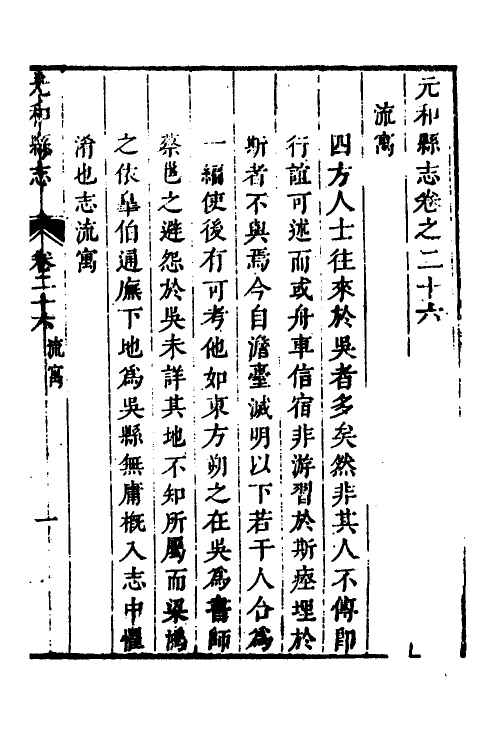 元和縣志卷之二十六
流寓
四方人士往來於吳者多矣然非其人不傳即
行誼可述而或舟車信宿非游習於斯瘞埋於
斯者不與焉今自澹臺滅明以下若干人合為
一編使後有可考他如東方朔之在吳為書師
蔡邕之避怨於吳未詳其地不知所屬而梁鴻
之依臯伯通廡下地為吳縣無庸概入志中懼
淆也志流寓
元和縣志
卷二十六
流寓
一